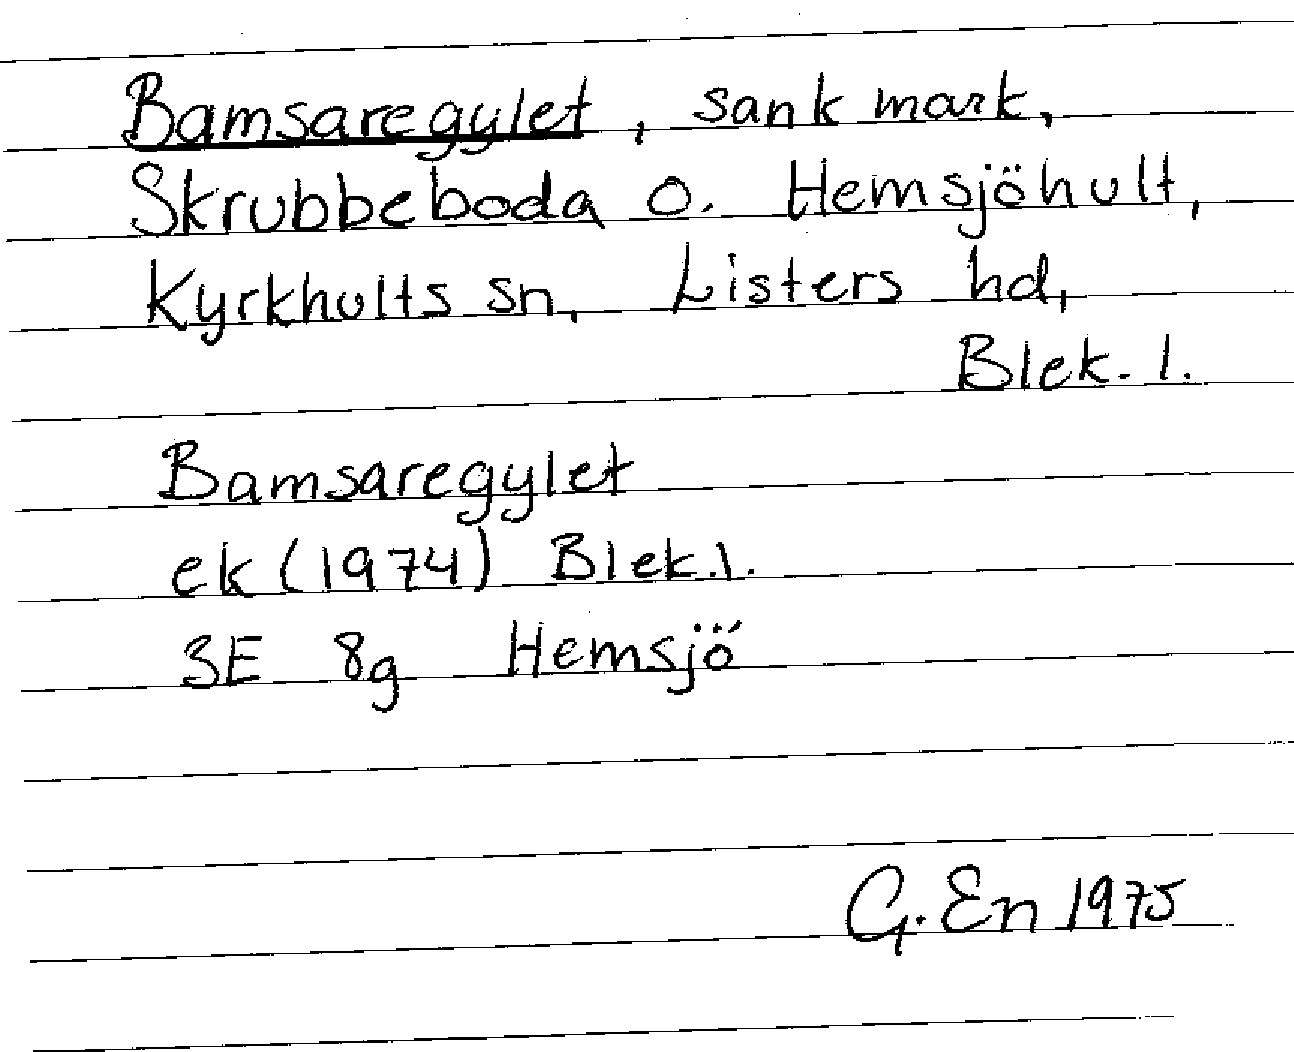 Bamsaregylet, sank mark,
Skrubbeboda o. Hemsjöhult,
Kyrkhults sn, Listers hd,
Blek. l.
Bamsaregylet
ek (1974) Blek.l.
3E 8g Hemsjö
G. En 1975